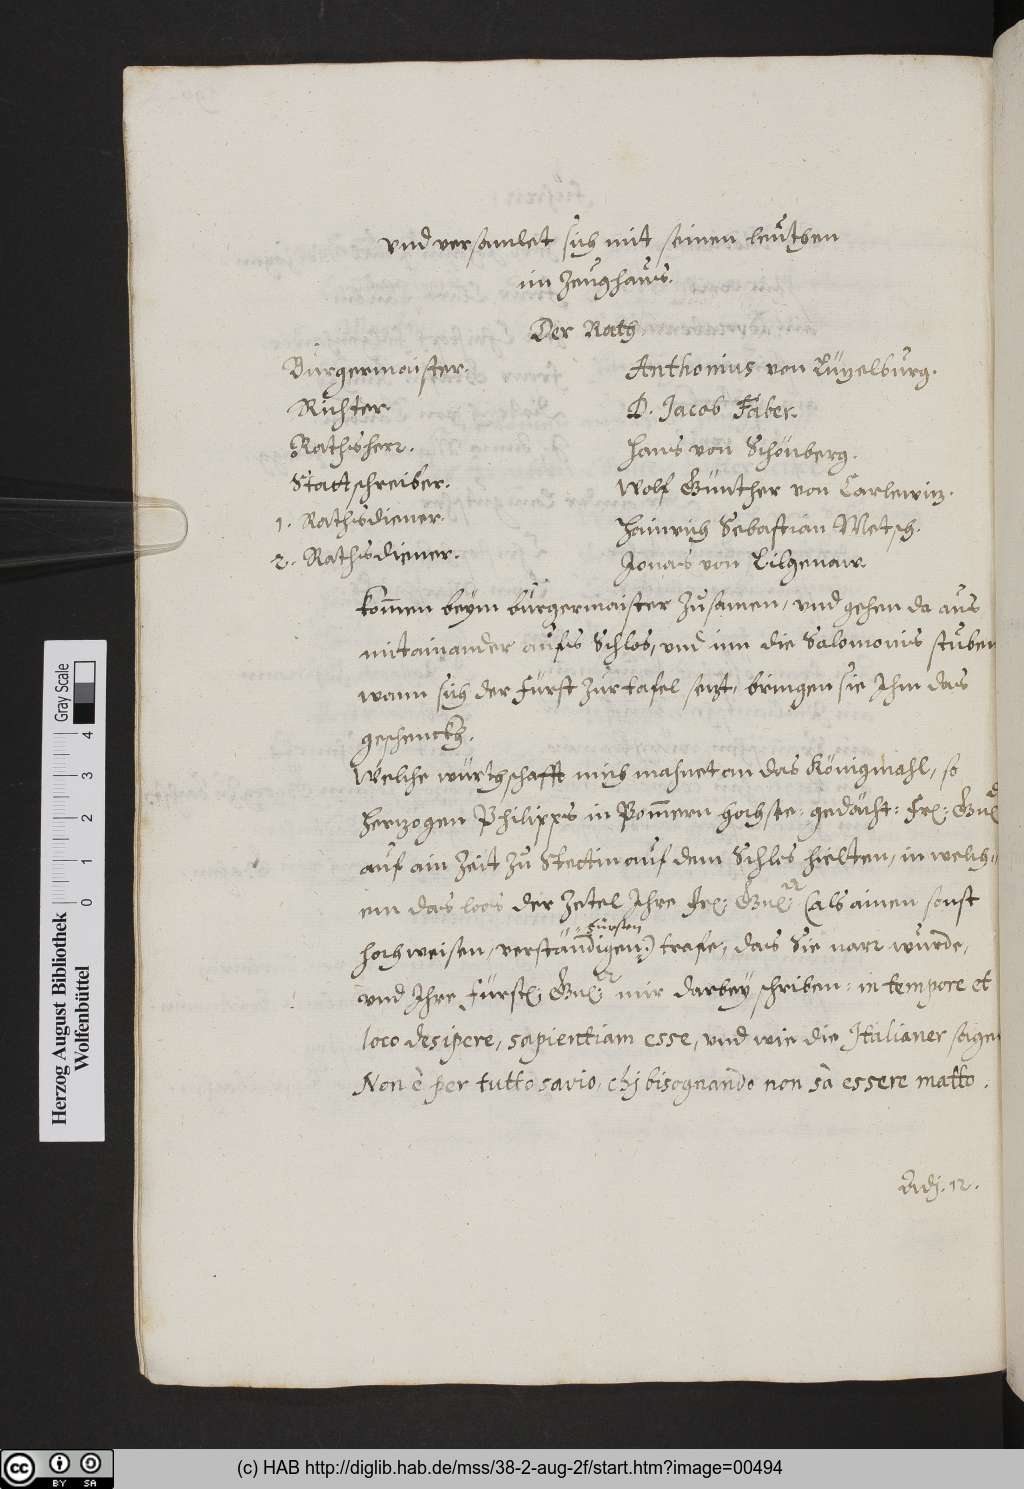 und versamlet sich mit seinen leüthen
im Zeughaüs.
Der Rath
Bürgermaister. Anthonius von Lüzelbürg.
Richter. D. Jacob Faber.
Rathsherr. Hans von Schönberg.
Stattschreiber. Wolf Günther von Carlewiz.
1. Rathsdiener. Hainrich Sebastian Metsch.
2. Rathsdiener. Jonas von Lilgenaw
kom̄en beym bürgermaister Züsamen, und gehen da aüs
mitainander aüfs Schlos, und inn die Salomonis stüben
wann sich der fürst Zur tafel sezt, bringen sie Ihm das
geschenckh.
Welche würthschafft mich mahnet an das Königmahl, so
Herzogen Philipps in Pom̄ern hochste: gedächt: Frl: Gnd
auf ain Zeit zu Stettin auf dem Schlos hielten, in welch=
em das loos der Zetel Ihre Frl: Gnl: (als ainen sonst
hochweisen, verständigen fürsten) trafe, das Sie narr würde,
und Ihre fürstl: Gnl: mir darbey schriben: in tempore et
loco desipere, sapientiam esse, und wie die Italianer sagen
Non è per tutto savio, chi bisognando non sà essere matto.
Adj. 12.
Herzog August Bibliothek
Wolfenbüttel
0 1 2 3 4
Gray Scale
cc BY SA
(c) HAB http://diglib.hab.de/mss/38-2-aug-2f/start.htm?image=00494